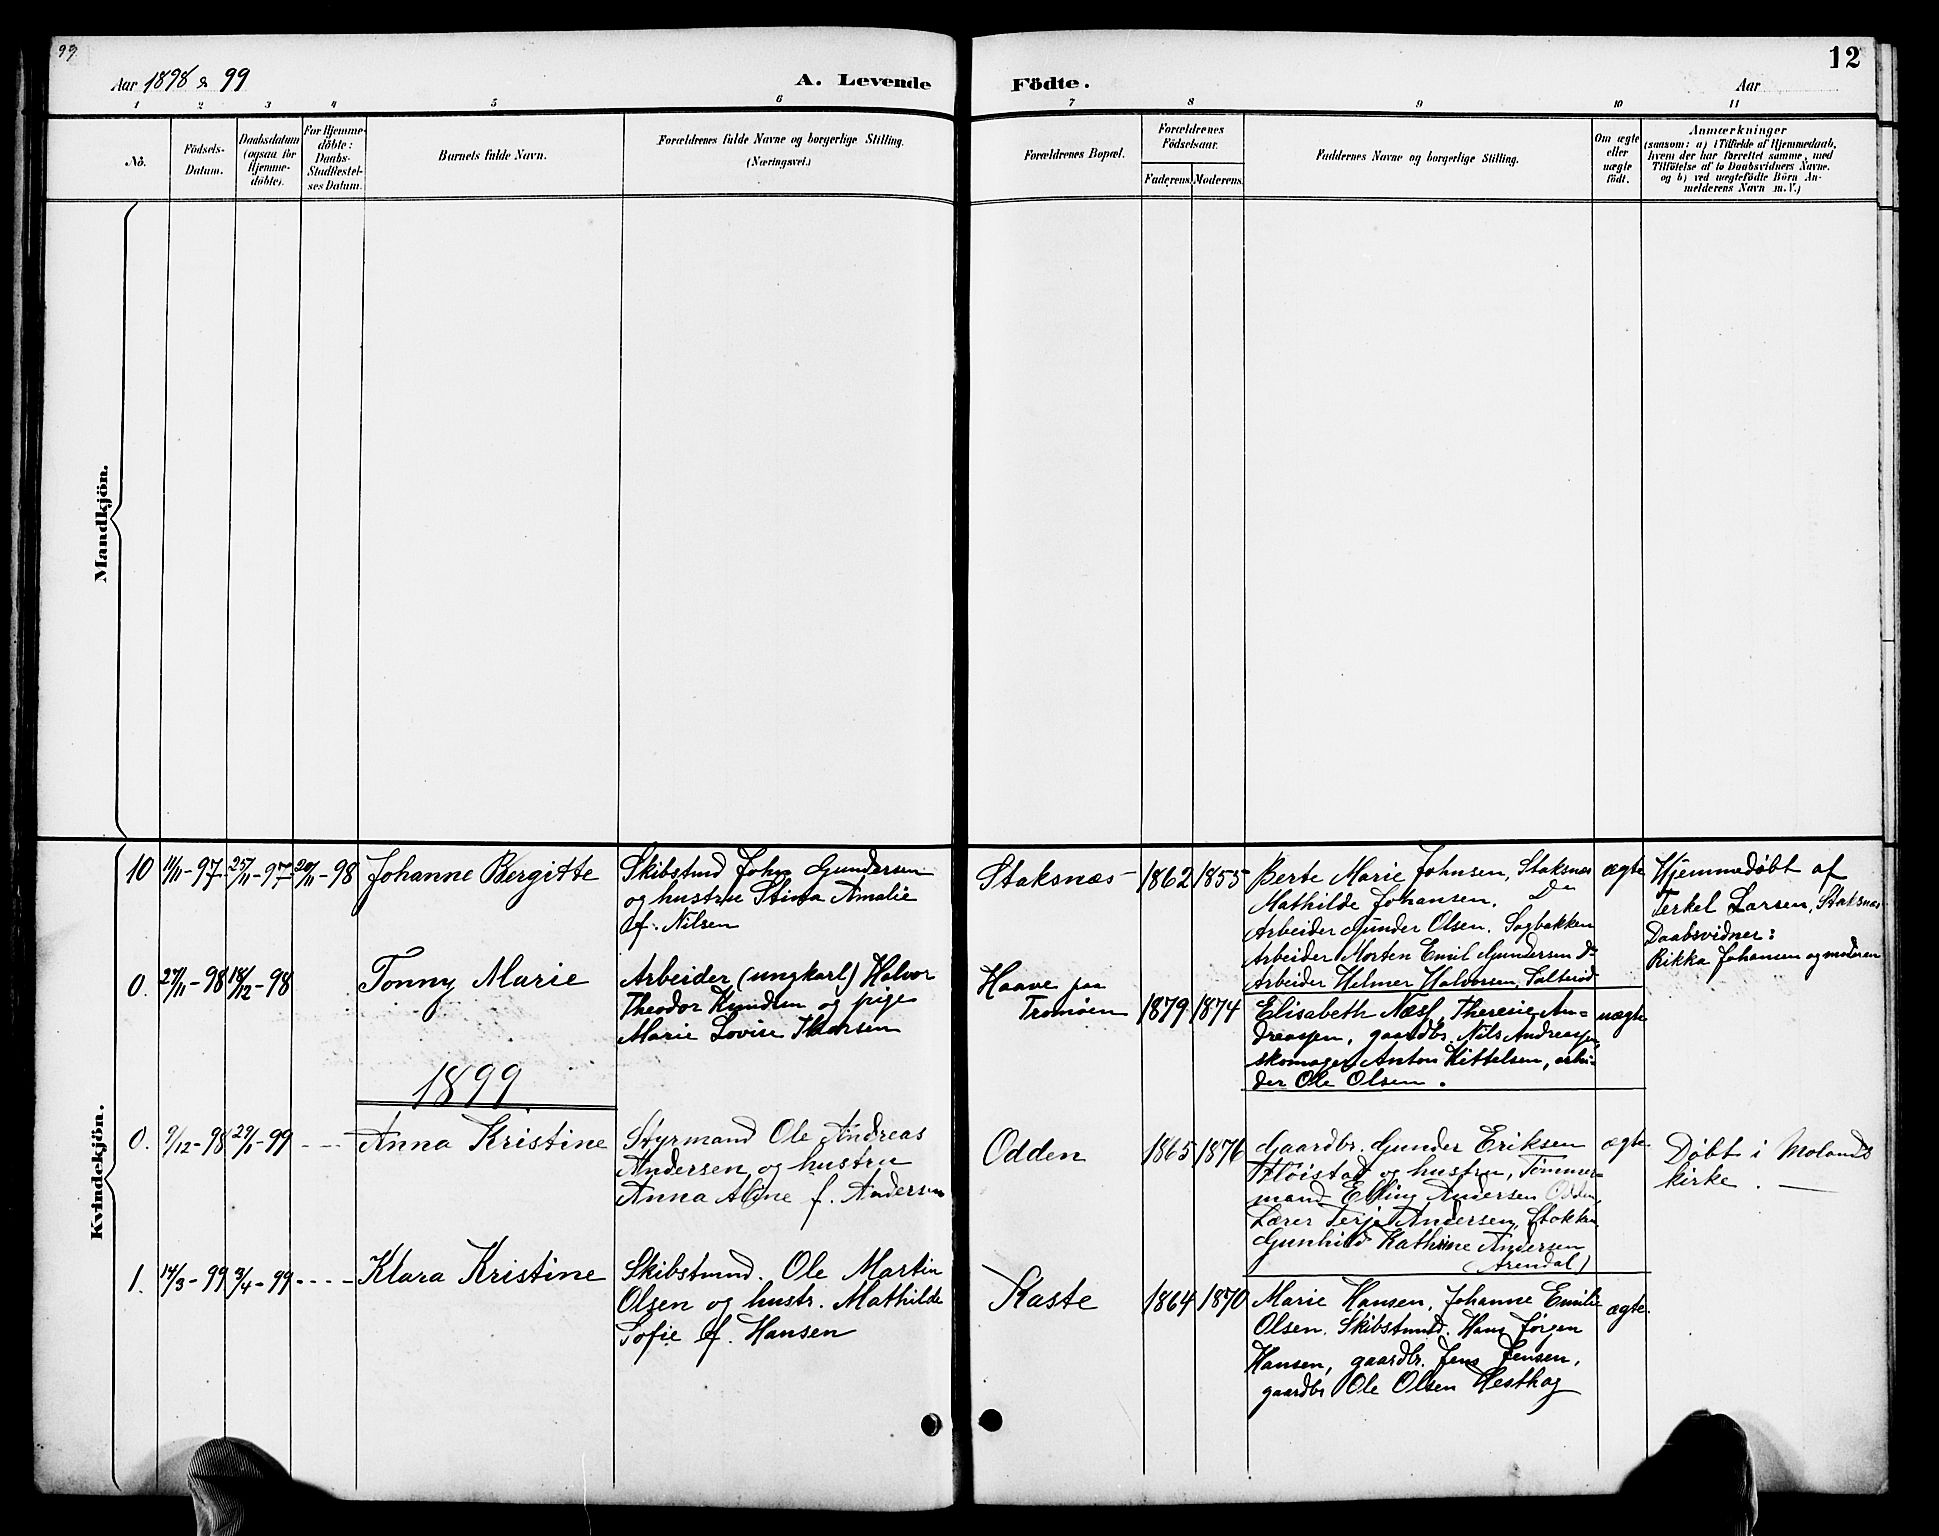 99.
12
Aar 1898 & 99
A. Levende
Födte.
Aar
1 2 3 4 5 6 7 8 9 10 11
No.
Födsels-
Datum.
Daabsdatum
(ogsaa for
Hjemme-
döbte).
For Hjemme-
döbte:
Daabs-
Stadfæstel-
ses Datum.
Barnets fulde Navn.
Forældrenes fulde Navne og borgerlige Stilling.
(Næringsvei.)
Forældrenes Bopæl.
Forældrenes
Födselsaar.
Faderens. Moderens.
Faddernes Navne og borgerlige Stilling.
Om ægte
eller
uægte
født.
Anmærkninger
(saasom: a) i Tilfælde af Hjemmedaab,
hvem der har forrettet samme, med
Tilföielse af to Daabsvidners Navne.
og b) ved uægtefödte Börn An-
melderens Navn m. V.)
Mandkjön.
Kvindekjön.
10 11/11-97 25/11-97 20/11-98
Johanne Bergitte
Skibstmd John Gundersen
og hustru Stina Amalie
af: Nilsen
Staksnæs
1862 1855
Berte Marie Johnsen, Staksnæs
Mathilde Johansen. Do
Arbeider Gunder Olsen. Sagbakken
Arbeider Morten Emil Gundersen Do
Arbeider Helmer Halvorsen, Salterød
ægte
Hjemmedøbt af
Terkel Larsen, Staksnæs
Daabsvidner:
Rikka Johansen og moderen
0. 27/11-98 18/12-98
Tonny Marie
Arbeider (ungkarl) Halvor
Theodor Knudsen og pige
Marie Lovise Thorsen
Haave paa
Tromøen
1879 1874
Elisabeth Næss, Theresie An=
dreassen, gaardbr. Nils Andreassen,
skomager Anton Kittelsen, arbei-
der Ole Olsen.
uægte
1899
0. 9/12-98 29/1-99 - -
Anna Kristine
Styrmand Ole Andreas
Andersen og hustru
Anna Aline f. Andersen
Odden
1865 1876
Gaardbr. Gunder Eriksen
Fløistad og hustru, Tømmer-
mand Elling Andersen Odden,
Lærer Terje Andersen, Stokken
Gunhild Kathrine Andersen
(Arendal)
ægte
Døbt i Molands
kirke. —
1. 14/3-99 3/4-99 - - - -
Klara Kristine
Skibstmnd. Ole Martin
Olsen og hustr. Mathilde
Sofie f. Hansen
Kaste
1864 1870
Marie Hansen, Johanne Emilie
Olsen. Skibstmnd. Hans Jørgen
Hansen, gaardbr. Jens Jensen,
gaardbr Ole Olsen Hesthag
ægte.